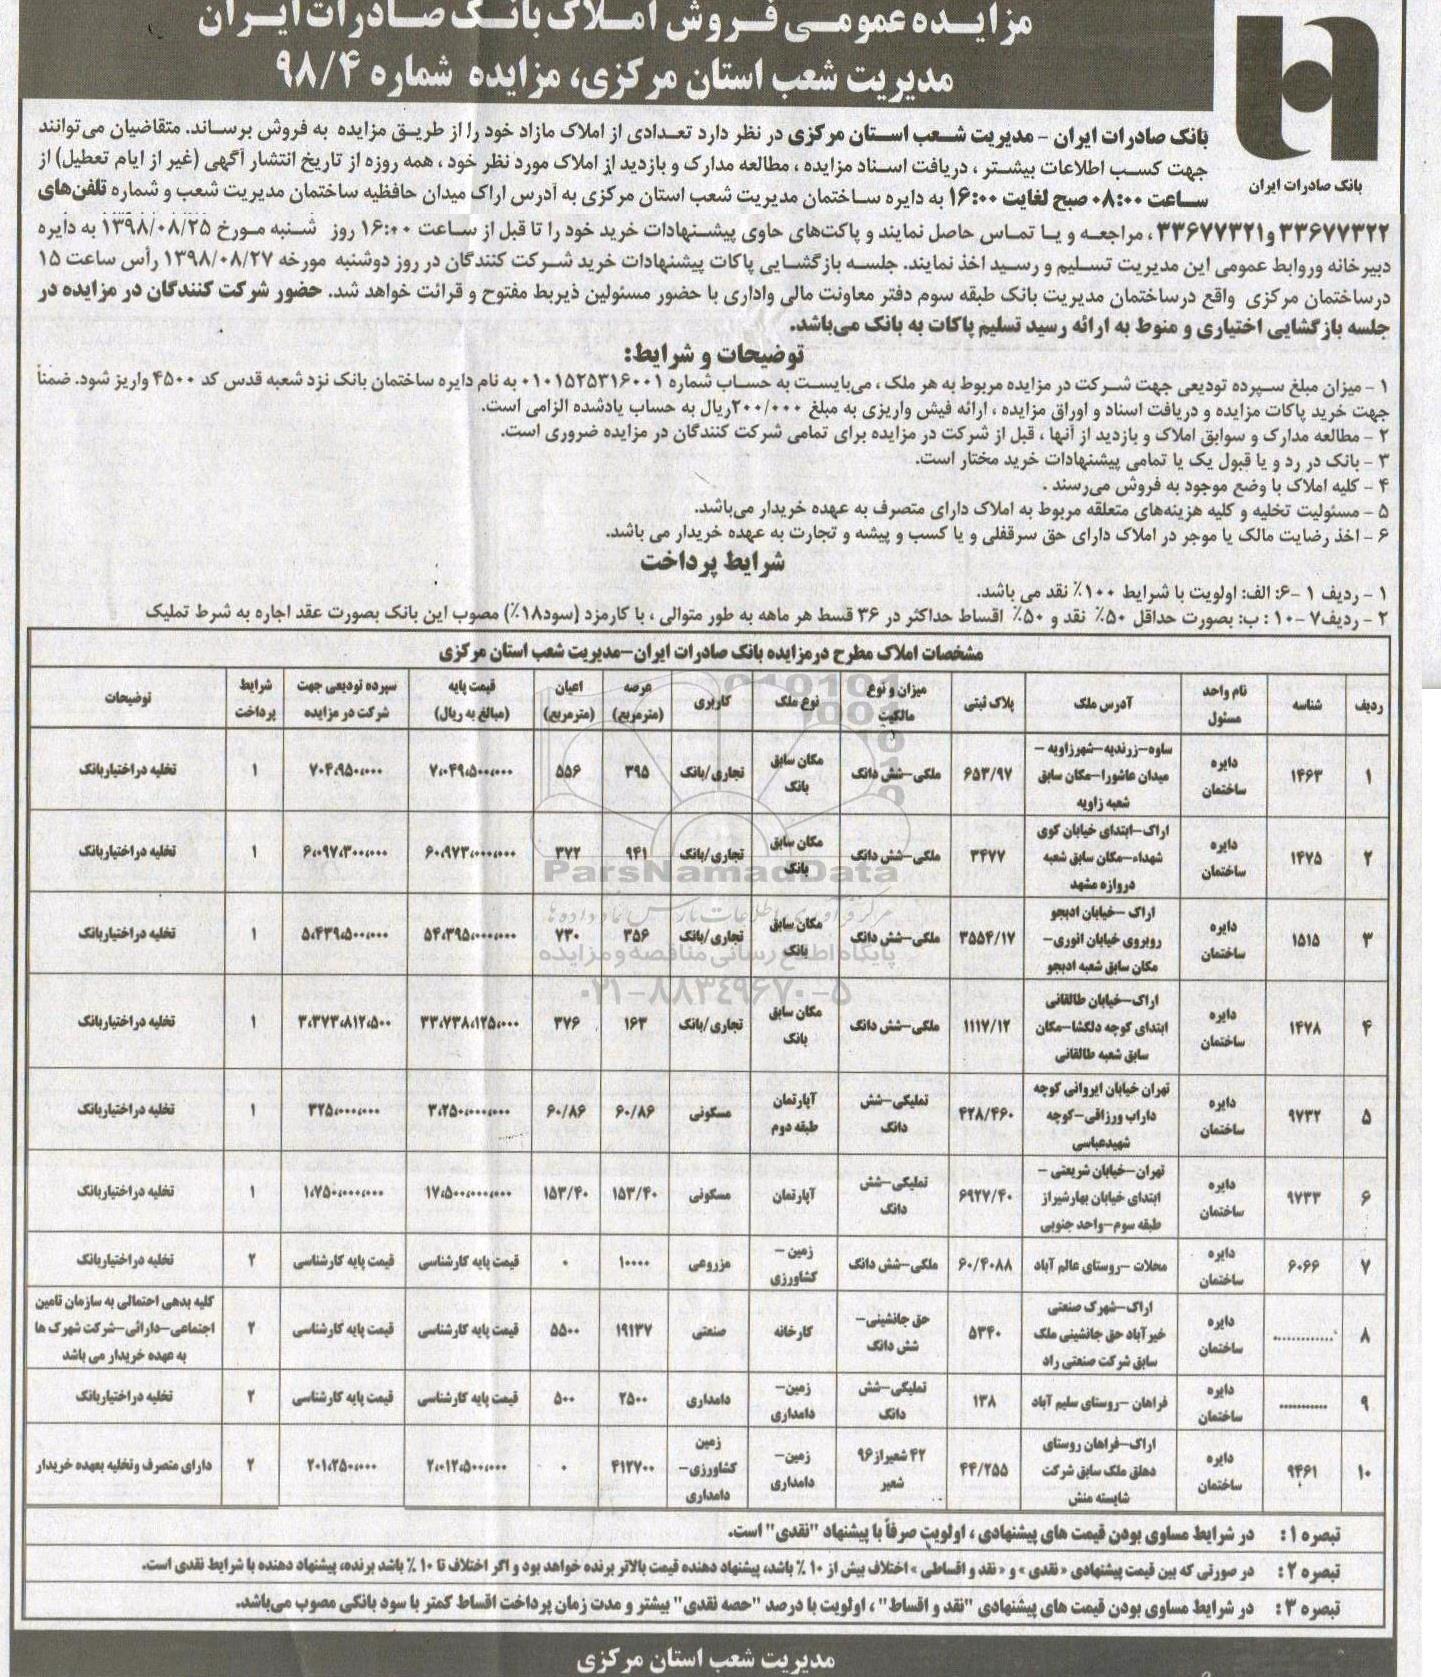 مزایده عمومی فروش املاک بانک صادرات ایران
مدیریت شعب استان مرکزی، مزایده شماره ۹۸/۴
بانک صادرات ایران
بانک صادرات ایران - مدیریت شعب استان مرکزی در نظر دارد تعدادی از املاک مازاد خود را از طریق مزایده به فروش برساند. متقاضیان می‌توانند
جهت کسب اطلاعات بیشتر ، دریافت اسناد مزایده ، مطالعه مدارک و بازدید از املاک مورد نظر خود ، همه روزه از تاریخ انتشار آگهی (غیر از ایام تعطیل) از
ساعت ۰۸:۰۰ صبح لغایت ۱۶:۰۰ به دایره ساختمان مدیریت شعب استان مرکزی به آدرس اراک میدان حافظیه ساختمان مدیریت شعب و شماره تلفن‌های
۳۳۶۷۷۳۲۲ و۳۳۶۷۷۳۲۱ ، مراجعه و یا تماس حاصل نمایند و پاکت‌های حاوی پیشنهادات خرید خود را تا قبل از ساعت ۱۶:۰۰ روز شنبه مورخ ۱۳۹۸/۰۸/۲۵ به دایره
دبیرخانه وروابط عمومی این مدیریت تسلیم و رسید اخذ نمایند. جلسه بازگشایی پاکات پیشنهادات خرید شرکت کنندگان در روز دوشنبه مورخه ۱۳۹۸/۰۸/۲۷ رأس ساعت ۱۵
درساختمان مرکزی واقع درساختمان مدیریت بانک طبقه سوم دفتر معاونت مالی واداری با حضور مسئولین ذیربط مفتوح و قرائت خواهد شد. حضور شرکت کنندگان در مزایده در
جلسه بازگشایی اختیاری و منوط به ارائه رسید تسلیم پاکات به بانک می‌باشد.
توضیحات و شرایط:
۱ - میزان مبلغ سپرده تودیعی جهت شرکت در مزایده مربوط به هر ملک ، می‌بایست به حساب شماره ۰۱۰۱۵۲۵۳۱۶۰۰۱ به نام دایره ساختمان بانک نزد شعبه قدس کد ۴۵۰۰ واریز شود. ضمناً
جهت خرید پاکات مزایده و دریافت اسناد و اوراق مزایده ، ارائه فیش واریزی به مبلغ ۲۰۰/۰۰۰ریال به حساب یادشده الزامی است.
۲ - مطالعه مدارک و سوابق املاک و بازدید از آنها ، قبل از شرکت در مزایده برای تمامی شرکت کنندگان در مزایده ضروری است.
۳ - بانک در رد و یا قبول یک یا تمامی پیشنهادات خرید مختار است.
۴ - کلیه املاک با وضع موجود به فروش می‌رسند .
۵ - مسئولیت تخلیه و کلیه هزینه‌های متعلقه مربوط به املاک دارای متصرف به عهده خریدار می‌باشد.
۶ - اخذ رضایت مالک یا موجر در املاک دارای حق سرقفلی و یا کسب و پیشه و تجارت به عهده خریدار می باشد.
شرایط پرداخت
۱ - ردیف ۱ -۶: الف: اولویت با شرایط ۱۰۰٪ نقد می باشد.
۲ - ردیف۷ -۱۰ : ب: بصورت حداقل ۵۰٪ نقد و ۵۰٪ اقساط حداکثر در ۳۶ قسط هر ماهه به طور متوالی ، با کارمزد (سود۱۸٪) مصوب این بانک بصورت عقد اجاره به شرط تملیک
مشخصات املاک مطرح درمزایده بانک صادرات ایران-مدیریت شعب استان مرکزی
ردیف | شناسه | نام واحد مسئول | آدرس ملک | پلاک ثبتی | میزان و نوع مالکیت | نوع ملک | کاربری | عرصه (مترمربع) | اعیان (مترمربع) | قیمت پایه (مبالغ به ریال) | سپرده تودیعی جهت شرکت در مزایده | شرایط پرداخت | توضیحات
۱ | ۱۴۶۳ | دایره ساختمان | ساوه-زرندیه-شهرزاویه - میدان عاشورا-مکان سابق شعبه زاویه | ۶۵۳/۹۷ | ملکی-شش دانگ | مکان سابق بانک | تجاری/بانک | ۳۹۵ | ۵۵۶ | ۷،۰۴۹،۵۰۰،۰۰۰ | ۷۰۴،۹۵۰،۰۰۰ | ۱ | تخلیه دراختیاربانک
۲ | ۱۴۷۵ | دایره ساختمان | اراک-ابتدای خیابان کوی شهداء-مکان سابق شعبه دروازه مشهد | ۳۴۷۷ | ملکی-شش دانگ | مکان سابق بانک | تجاری/بانک | ۹۴۱ | ۳۷۲ | ۶۰،۹۷۳،۰۰۰،۰۰۰ | ۶،۰۹۷،۳۰۰،۰۰۰ | ۱ | تخلیه دراختیاربانک
۳ | ۱۵۱۵ | دایره ساختمان | اراک -خیابان ادبجو روبروی خیابان انوری- مکان سابق شعبه ادبجو | ۳۵۵۴/۱۷ | ملکی-شش دانگ | مکان سابق بانک | تجاری/بانک | ۳۵۶ | ۷۳۰ | ۵۴،۳۹۵،۰۰۰،۰۰۰ | ۵،۴۳۹،۵۰۰،۰۰۰ | ۱ | تخلیه دراختیاربانک
۴ | ۱۴۷۸ | دایره ساختمان | اراک-خیابان طالقانی ابتدای کوچه دلگشا-مکان سابق شعبه طالقانی | ۱۱۱۷/۱۲ | ملکی-شش دانگ | مکان سابق بانک | تجاری/بانک | ۱۶۳ | ۳۷۶ | ۳۳،۷۳۸،۱۲۵،۰۰۰ | ۳،۳۷۳،۸۱۲،۵۰۰ | ۱ | تخلیه دراختیاربانک
۵ | ۹۷۳۲ | دایره ساختمان | تهران خیابان ایروانی کوچه داراب ورزاقی-کوچه شهیدعباسی | ۴۲۸/۴۶۰ | تملیکی-شش دانگ | آپارتمان طبقه دوم | مسکونی | ۶۰/۸۶ | ۶۰/۸۶ | ۳،۲۵۰،۰۰۰،۰۰۰ | ۳۲۵،۰۰۰،۰۰۰ | ۱ | تخلیه دراختیاربانک
۶ | ۹۷۳۳ | دایره ساختمان | تهران-خیابان شریعتی - ابتدای خیابان بهارشیراز طبقه سوم-واحد جنوبی | ۶۹۲۷/۴۰ | تملیکی-شش دانگ | آپارتمان | مسکونی | ۱۵۳/۴۰ | ۱۵۳/۴۰ | ۱۷،۵۰۰،۰۰۰،۰۰۰ | ۱،۷۵۰،۰۰۰،۰۰۰ | ۱ | تخلیه دراختیاربانک
۷ | ۶۰۶۶ | دایره ساختمان | محلات -روستای عالم آباد | ۶۰/۴۰۸۸ | ملکی-شش دانگ | زمین - کشاورزی | مزروعی | ۱۰۰۰۰ | ۰ | قیمت پایه کارشناسی | قیمت پایه کارشناسی | ۲ | تخلیه دراختیاربانک
۸ | ............ | دایره ساختمان | اراک-شهرک صنعتی خیرآباد حق جانشینی ملک سابق شرکت صنعتی راد | ۵۳۴۰ | حق جانشینی- شش دانگ | کارخانه | صنعتی | ۱۹۱۳۷ | ۵۵۰۰ | قیمت پایه کارشناسی | قیمت پایه کارشناسی | ۲ | کلیه بدهی احتمالی به سازمان تامین اجتماعی-دارائی-شرکت شهرک ها به عهده خریدار می باشد
۹ | .......... | دایره ساختمان | فراهان -روستای سلیم آباد | ۱۳۸ | تملیکی-شش دانگ | زمین- دامداری | دامداری | ۲۵۰۰ | ۵۰۰ | قیمت پایه کارشناسی | قیمت پایه کارشناسی | ۲ | تخلیه دراختیاربانک
۱۰ | ۹۴۶۱ | دایره ساختمان | اراک-فراهان روستای دهلق ملک سابق شرکت شایسته منش | ۴۴/۲۵۵ | ۴۲ شعیراز۹۶ شعیر | زمین- دامداری | زمین کشاورزی- دامداری | ۴۱۲۷۰۰ | ۰ | ۲،۰۱۲،۵۰۰،۰۰۰ | ۲۰۱،۲۵۰،۰۰۰ | ۲ | دارای متصرف وتخلیه بعهده خریدار
تبصره ۱: در شرایط مساوی بودن قیمت های پیشنهادی ، اولویت صرفاً با پیشنهاد "نقدی" است.
تبصره ۲: در صورتی که بین قیمت پیشنهادی «نقدی» و «نقد و اقساطی» اختلاف بیش از ۱۰ ٪ باشد، پیشنهاد دهنده قیمت بالاتر برنده خواهد بود و اگر اختلاف تا ۱۰ ٪ باشد برنده، پیشنهاد دهنده با شرایط نقدی است.
تبصره ۳: در شرایط مساوی بودن قیمت های پیشنهادی "نقد و اقساط" ، اولویت با درصد "حصه نقدی" بیشتر و مدت زمان پرداخت اقساط کمتر با سود بانکی مصوب می‌باشد.
مدیریت شعب استان مرکزی
ParsNamadData
پایگاه اطلاع رسانی مناقصه و مزایده
۰۲۱-۸۸۳۴۹۶۷۰-۵